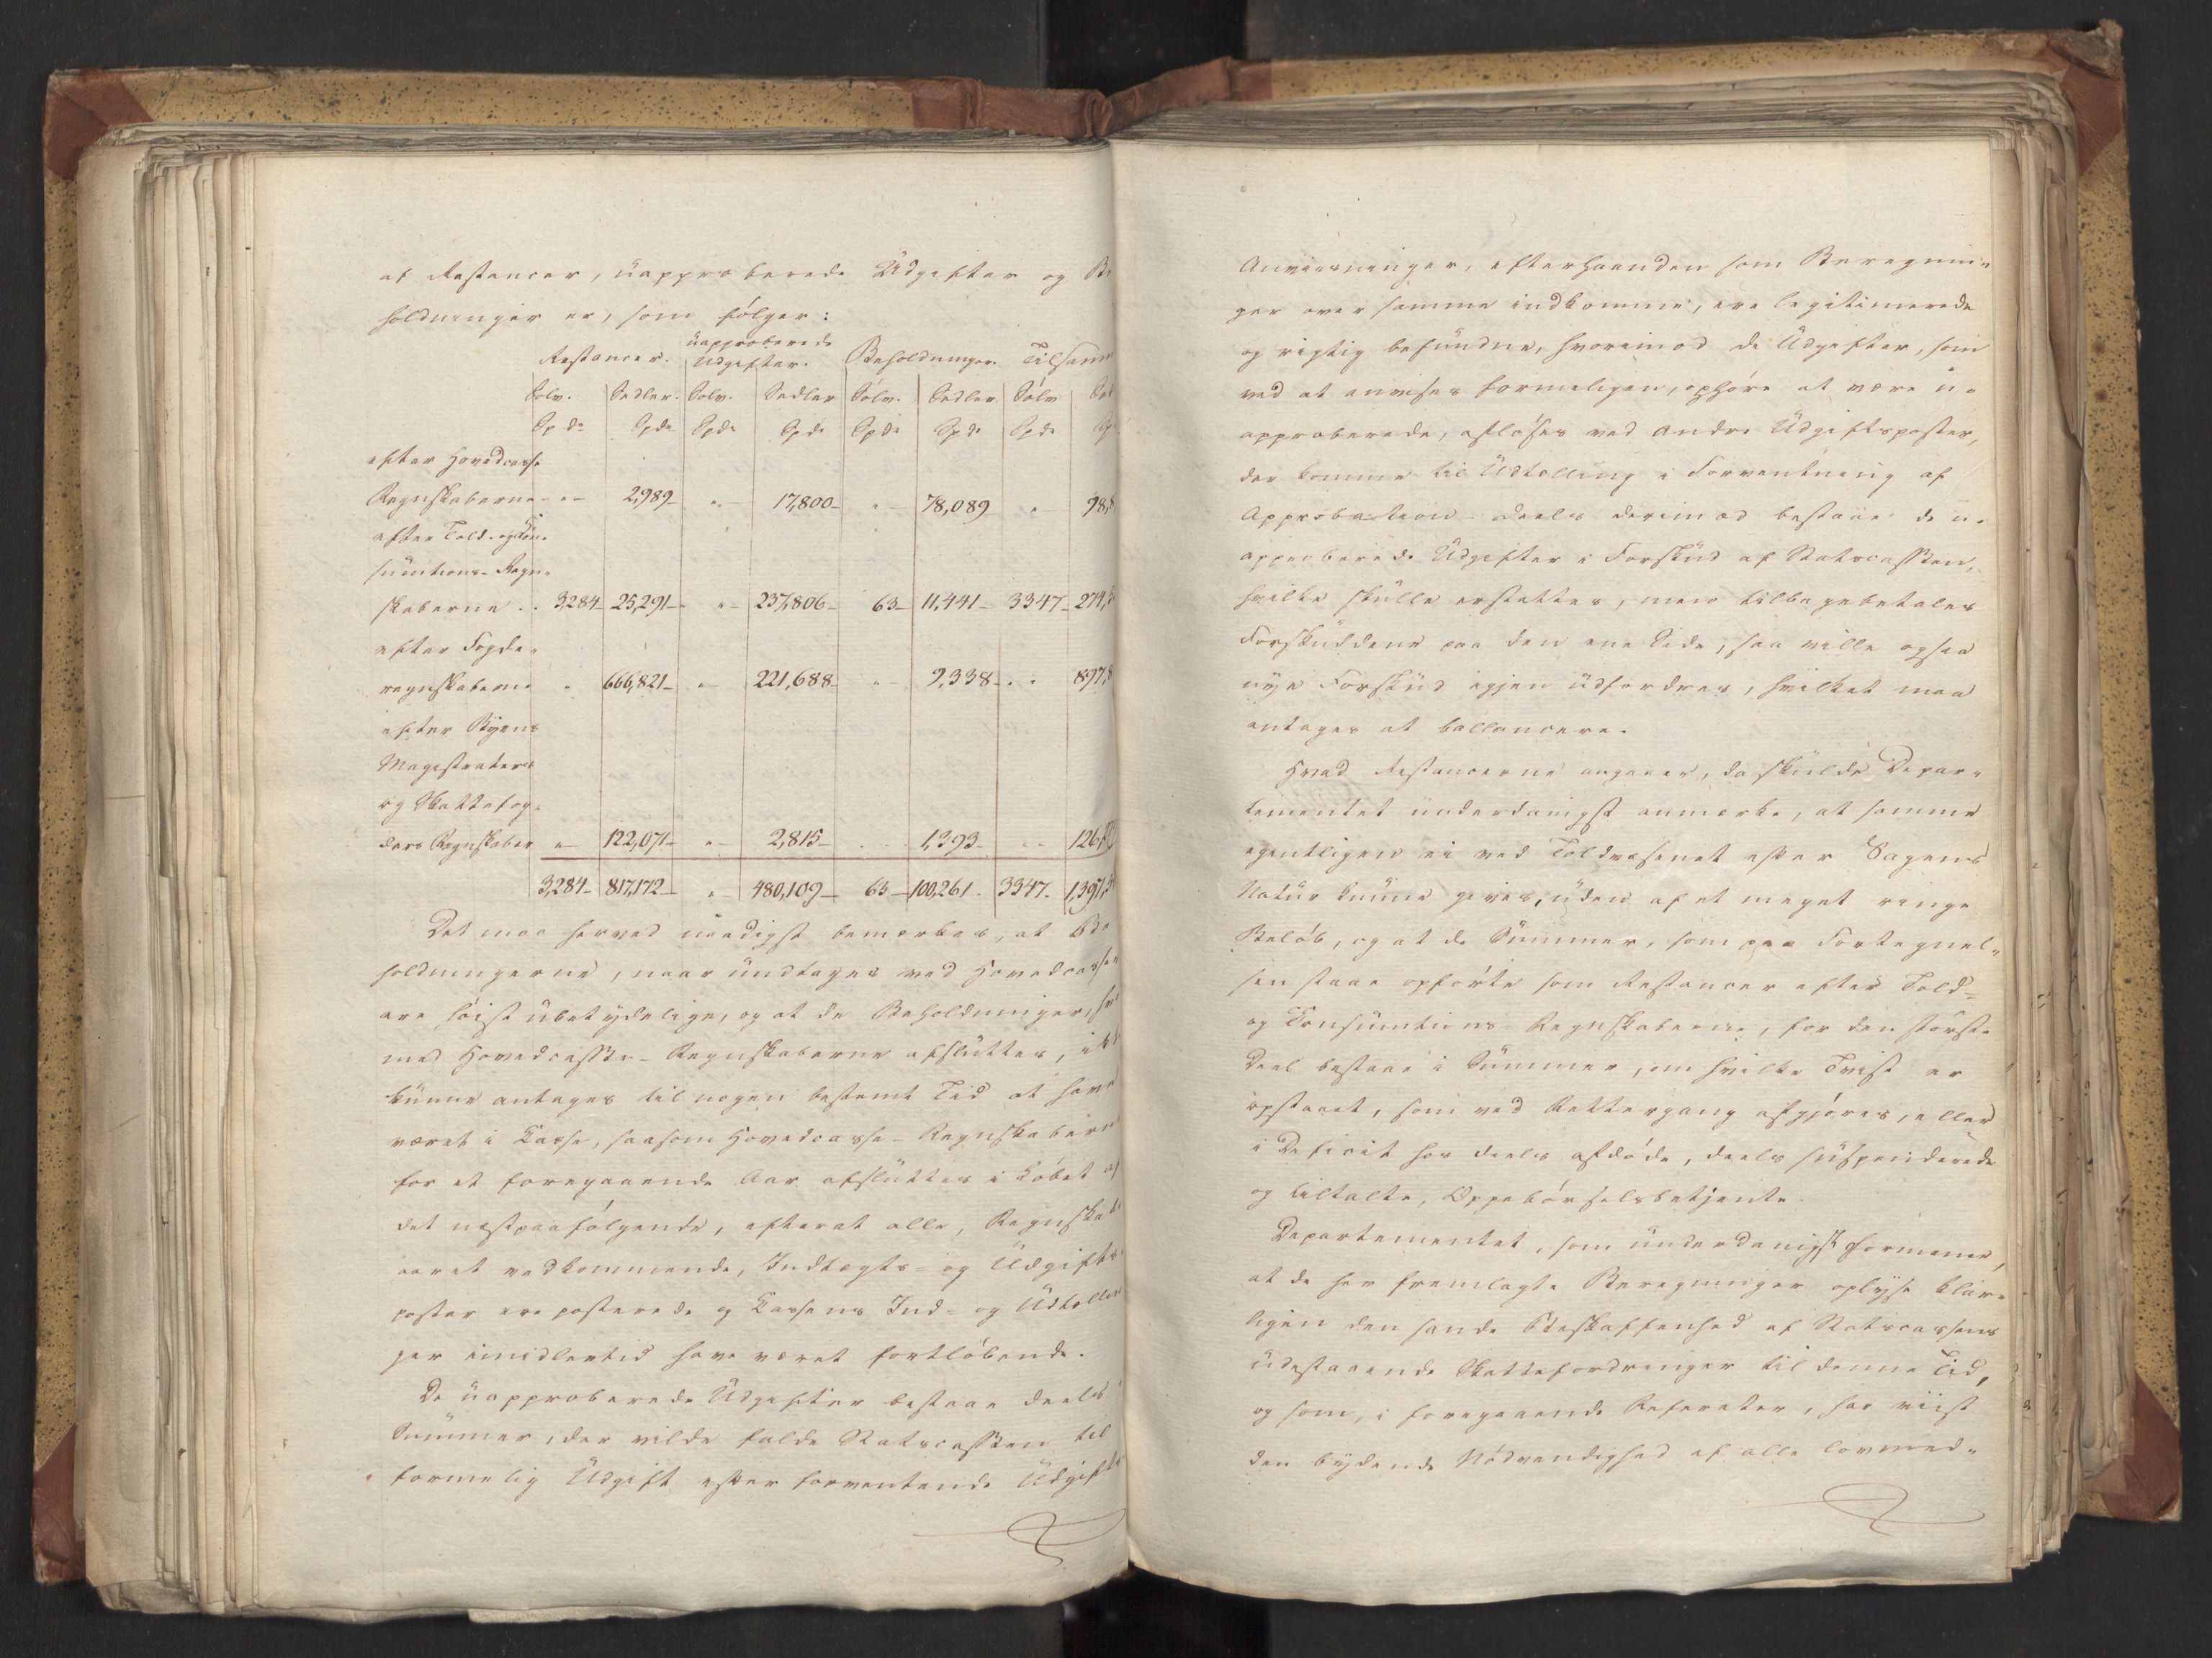 af Restancer, uapproberede Udgifter og Be
holdninger er, som følger:
Restancer. uapproberede Udgifter. Beholdninger. Tilsam
Sølv. Sedler. Sølv. Sedler Sølv. Sedler Sølv Sed
Spd. Spd. Spd. Spd. Spd. Spd. Spd. Sp
efter Hovedcasse
Regnskaberne - „ - 2,989 - „ - 17,800 - „ - 78,089 „ - 98,8
efter Told- og Con-
sumtions-Regn-
skaberne .. 3,284 - 25,291 - „ - 237,806 - 63 - 11,441 - 3347 - 274,5
efter Fogde-
regnskaberne „ 666,821 - „ - 221,688 - „ - 9,338 - „ 897,8
efter Byens
Magistraters
og Skattefog-
ders Regnskaber „ - 122,071 - „ - 2,815 - 1,393 - 126,27
3,284 - 817,172 - „ - 480,109 - 63 - 100,261 - 3347 - 1,397,5
Det maa herved naadigst bemærkes, at Be
holdningerne, naar undtages ved Hovedcassen
ere høist ubetydelige, og at de Beholdninger, hvor
med Hovedcasse-Regnskaberne afsluttes, ikke
kunne antages til nogen bestemt Tid at have
været i Casse, saasom Hovedcasse-Regnskaberne
for et foregaaende Aar afsluttes i Løbet af
det næstpaafølgende, efterat alle, Regnskabs
aaret vedkommende, Indtægts- og Udgifts
poster ere posterede og Cassens Ind- og Udtællin
ger imidlertid have været fortløbende.
De uapproberede Udgifter bestaae deels i
Summer, der vilde falde Statscassen til
formelig Udgift efter forventende Udgifts
Anviisninger, efterhaanden som Beregnin
ger over samme indkomme, ere legitimerede
og rigtig befundne, hvorimod de Udgifter, som
ved at anvises formeligen, ophøre at være u-
approberede, afløses ved andre Udgiftsposter,
der komme til Udtælling i Forventning af
Approbation - deels derimod bestaae de u-
approberede Udgifter i Forskud af Statscassen,
hvilke skulle erstattes, men tilbagebetales
Forskuddene paa den ene Side, saa ville ogsaa
nye Forskud igjen udfordres, hvilket maa
antages at ballancere.
Hvad Restancerne angaaer, da skulde Depar-
tementet underdanigst anmærke, at samme
egentligen ei ved Toldvæsenet efter Sagens
Natur kunne gives, uden af et meget ringe
Beløb, og at de Summer, som paa Fortegnel-
sen staae opførte som Restancer efter Told-
og Consumtions-Regnskaberne, for den største
Deel bestaae i Summer, om hvilke Tvist er
opstaaet, som ved Rettergang afgjøres, eller
i Deficit hos deels afdøde, deels suspenderede
og tiltalte, Oppebørselsbetjente.
Departementet, som underdanigst formener,
at de her fremlagte Beregninger oplyse klar-
ligen den sande Beskaffenhed af Statscassens
udestaaende Skattefordringer til denne Tid,
og som, i foregaaende Referater, har viist
den bydende Nødvendighed af alle lovmed-